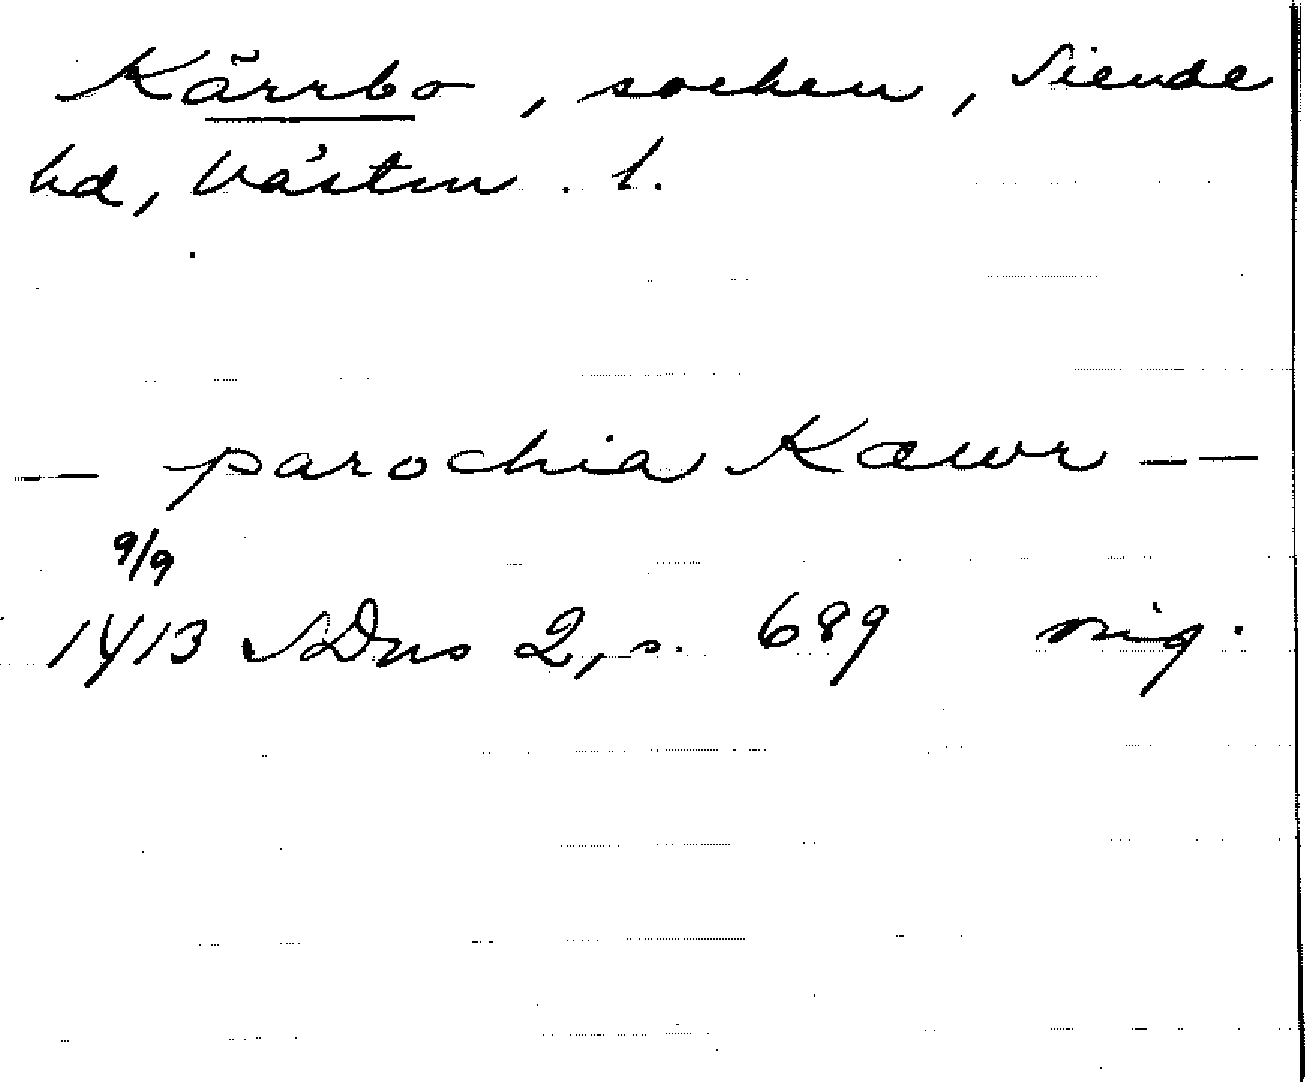 Kärrbo, socken, Siende
hd, Västm. l.
— parochia Kæwr — —
9/9
1413 SDns 2, s. 689 orig.